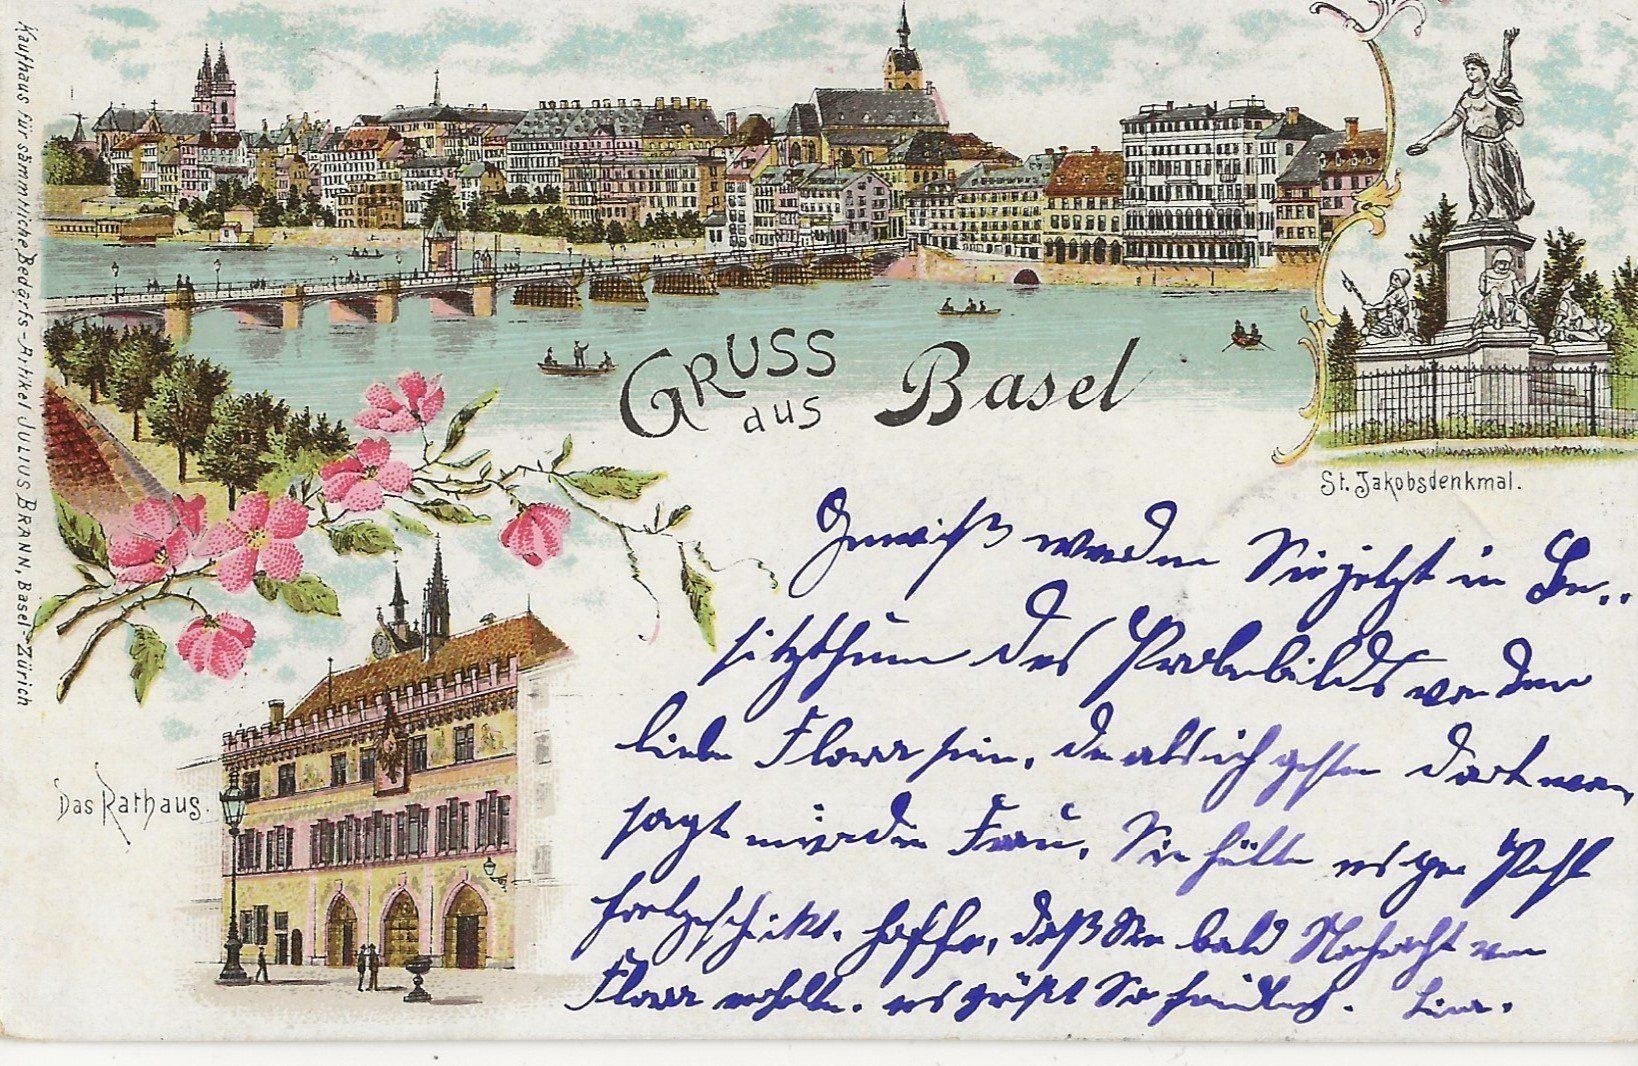 Kaufhaus für sämmtliche Bedarfs-Artikel JULIUS BRANN, Basel-Zürich
GRUSS
aus Basel
St. Jakobsdenkmal.
Das Rathaus.
Gewiß werden Sie jetzt in Be..
sitzthum des Probebilds von der
liebe Flora sein, da als ich gestern dort war,
sagt mir die Frau, Sie hätte es per Post
fortgeschikt. hoffe, daß Sie bald Nachricht von
Flora erhalte. es grüßt Sie freundlich.